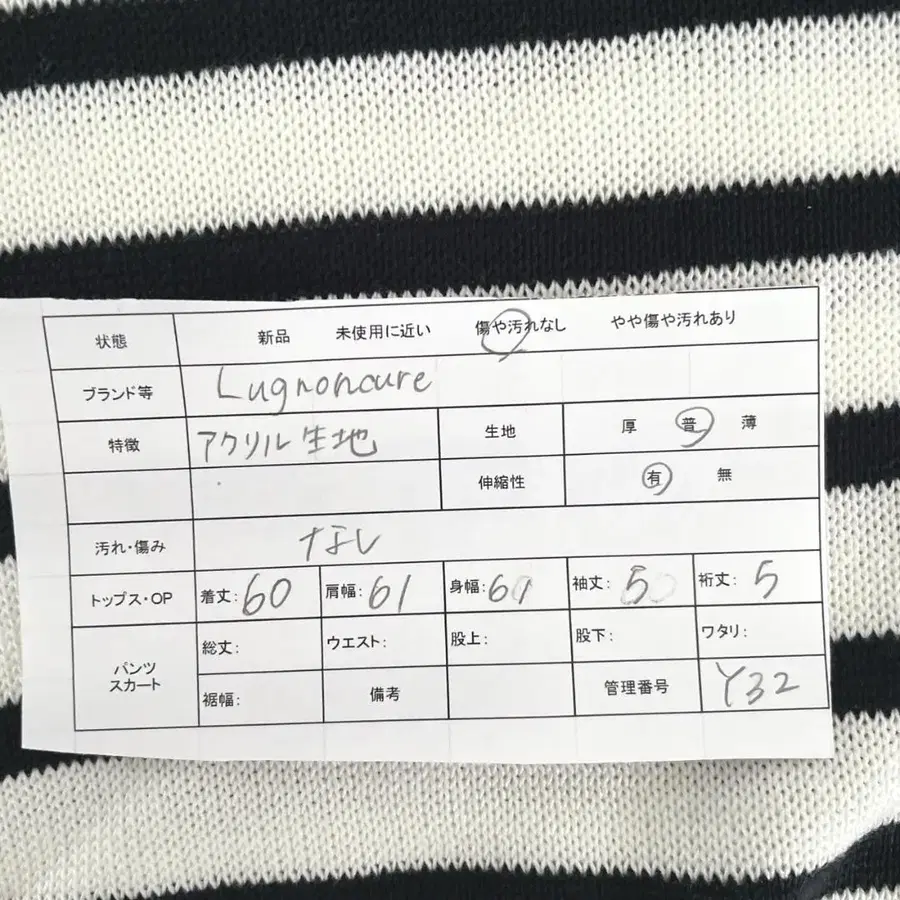 状態 新品 未使用に近い 傷や汚れなし やや傷や汚れあり
ブランド等 Lugnoncure
特徴 アクリル生地 生地 厚 普 薄
伸縮性 有 無
汚れ・傷み なし
トップス・OP 着丈:60 肩幅:61 身幅:61 袖丈:5 裄丈:5
パンツ スカート 総丈: ウエスト: 股上: 股下: ワタリ:
裾幅: 備考 管理番号 Y32